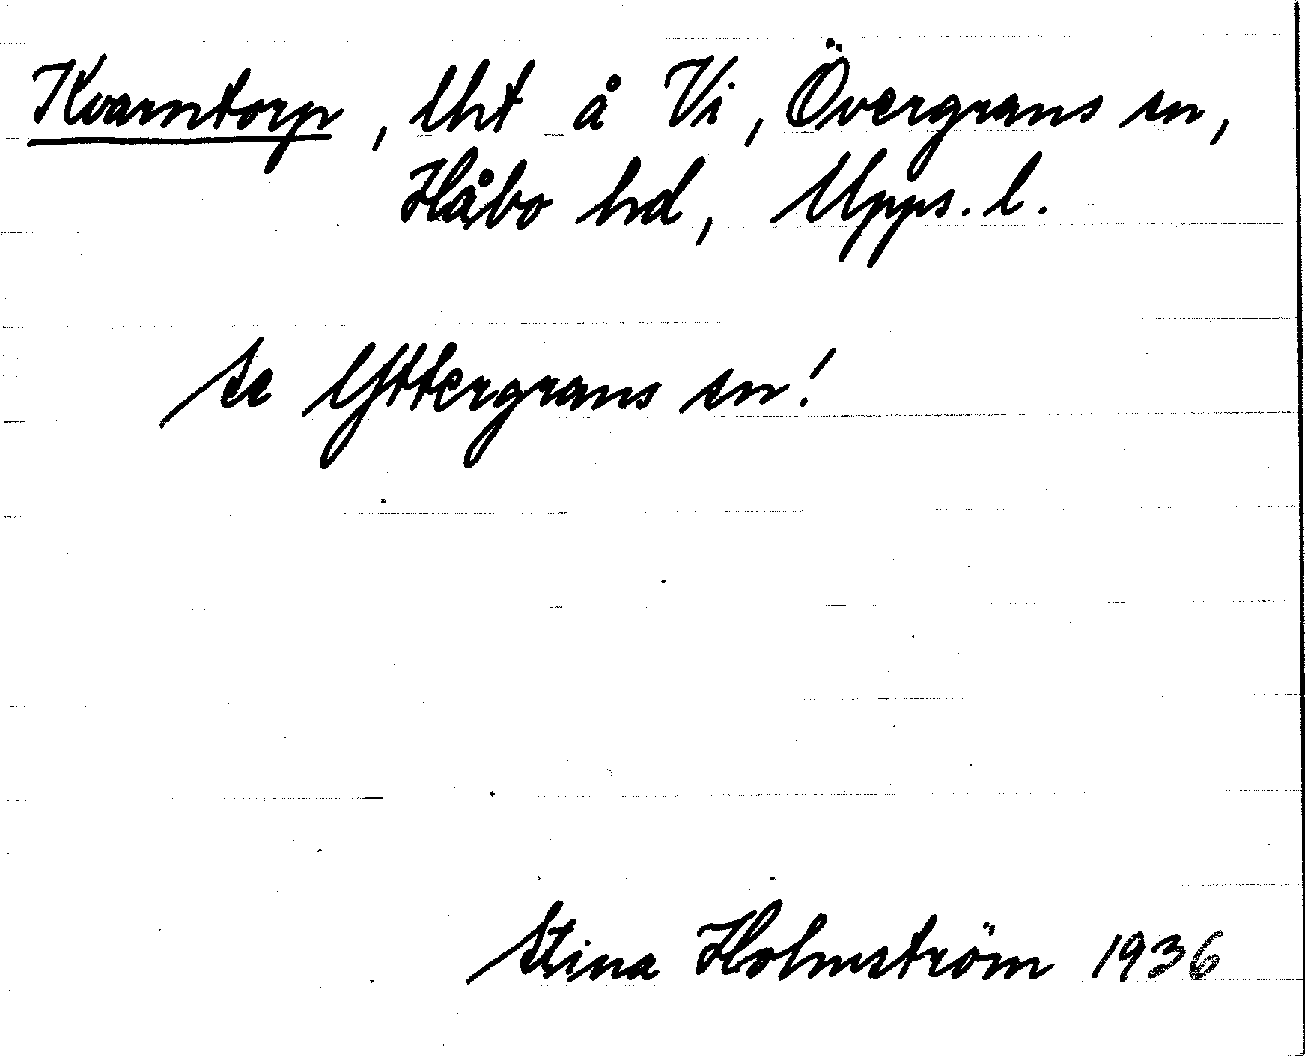 Kvarntorp, lht å Vi, Övergrans sn,
Håbo hd, Upps. l.
Se Yttergrans sn!
Stina Holmström 1936